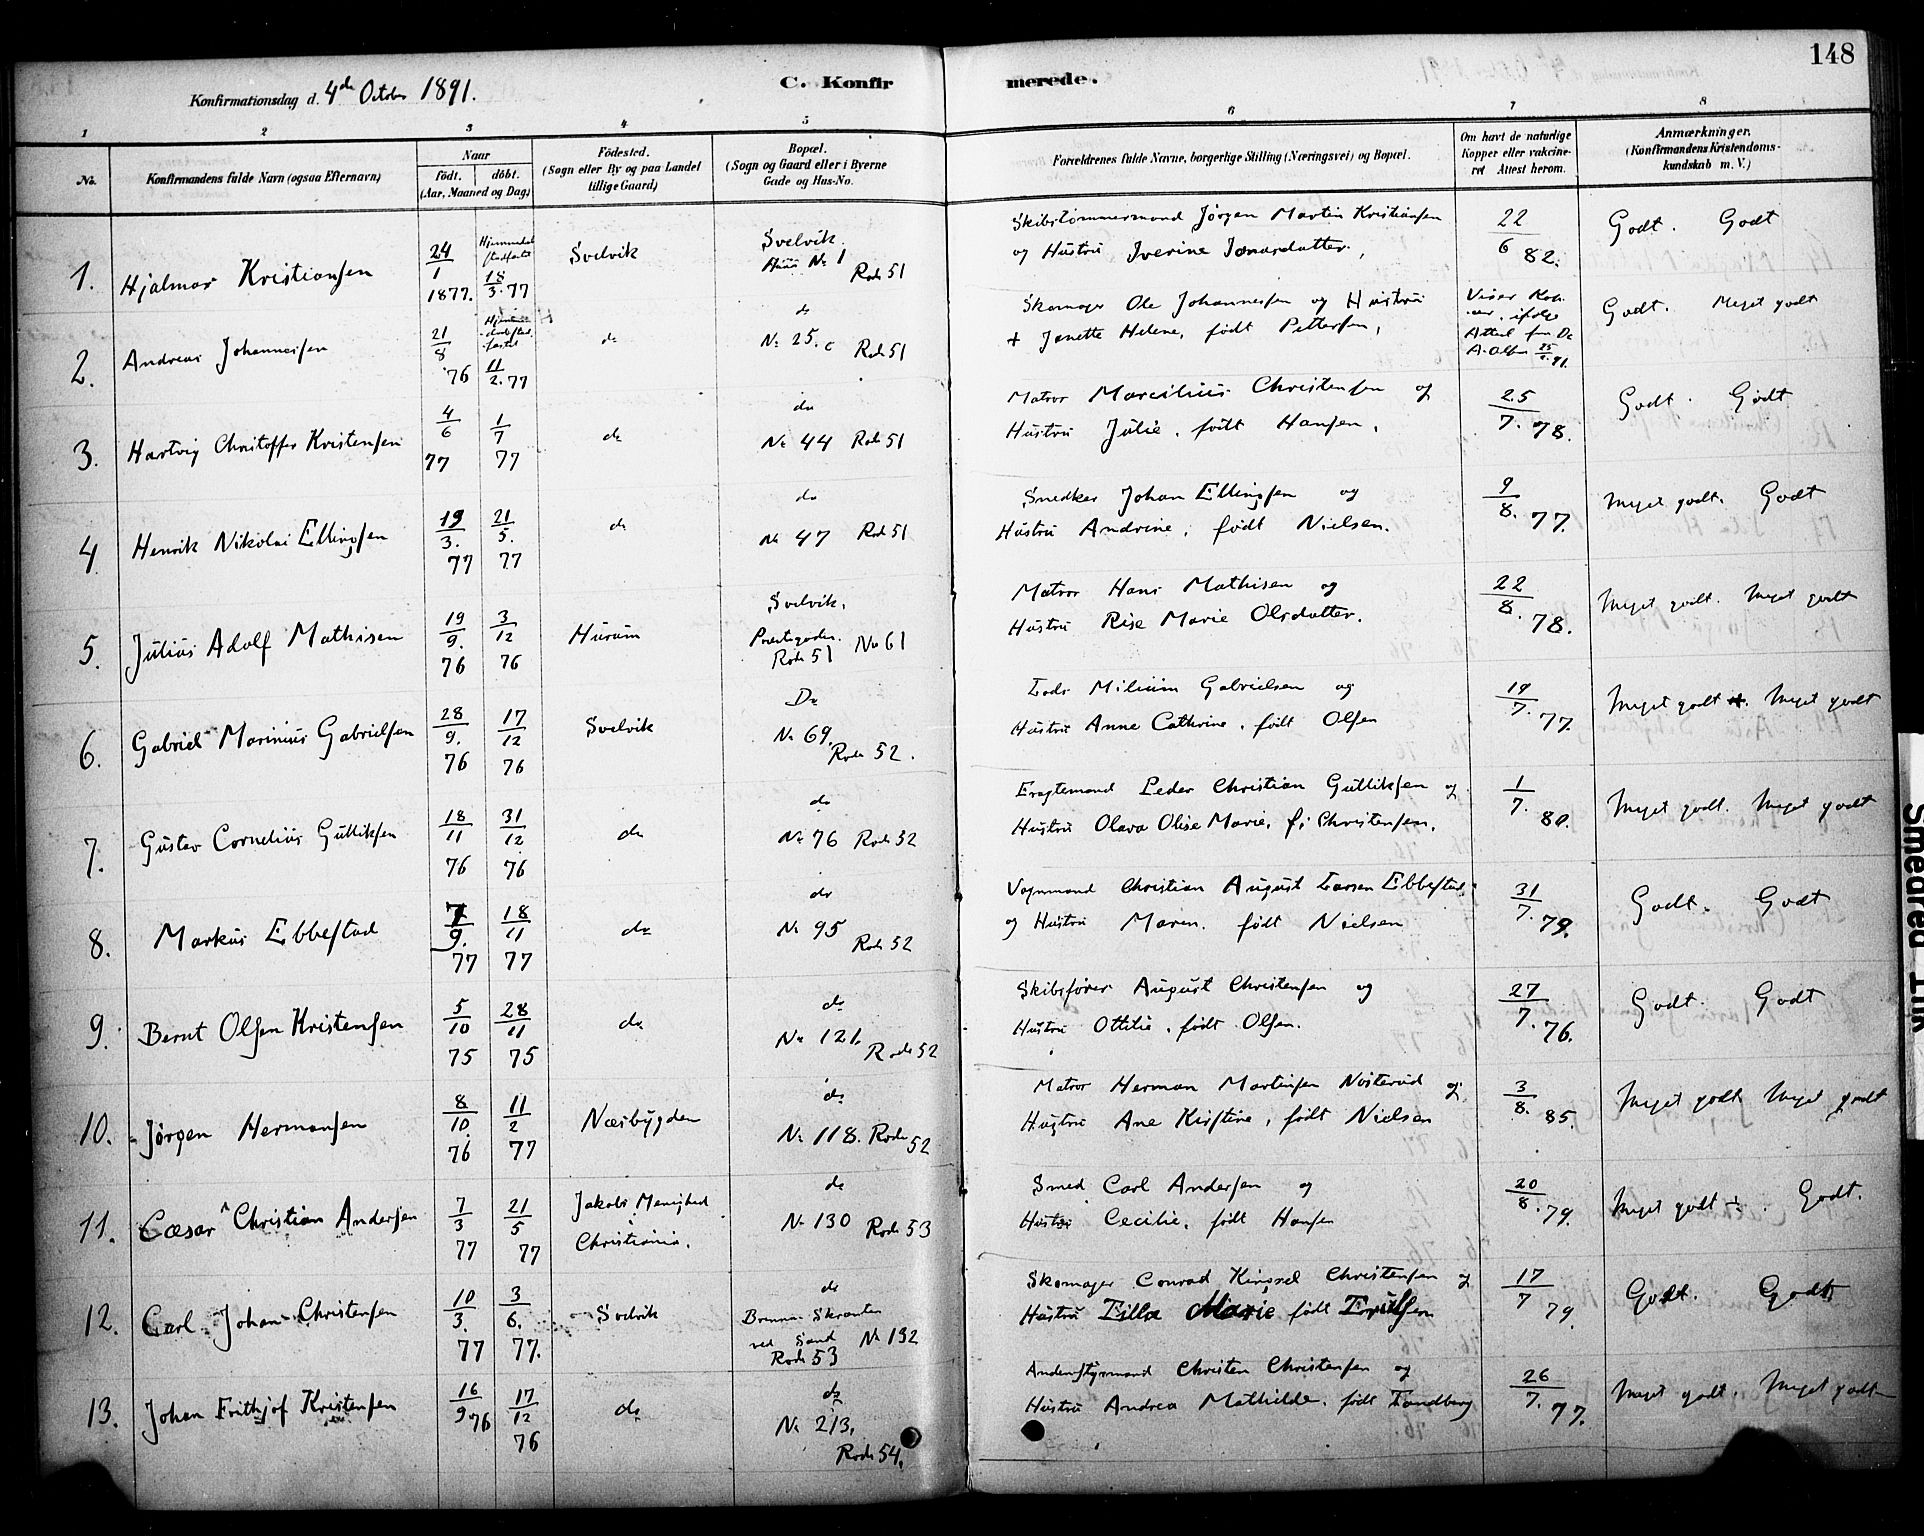 148
Konfirmationsdag d. 4de October 1891.
C. Konfirmerede.
1 2 3 4 5 6 7 8
No.
Konfirmandens fulde Navn (ogsaa Efternavn)
Naar
födt. döbt.
(Aar, Maaned og Dag)
Födested.
(Sogn eller By og paa Landet
tillige Gaard)
Bopæl.
(Sogn og Gaard eller i Byerne
Gade og Hus-No.
Forældrenes fulde Navne, borgerlige Stilling (Næringsvei) og Bopæl.
Om havt de naturlige
Kopper eller vakcine-
ret Attest herom.
Anmærkninger.
(Konfirmandens Kristendoms-
kundskab m. V.)
1. Hjalmar Kristiansen 24/1 1877. 18/3.77 Svelvik Svelvik. Huus No 1 Rode 51
Skibstømmermand Jörgen Martin Kristiansen
og Hustru Iverine
22/6 82. Godt. Godt
2. Andreas Johannessen 21/8 76 11/2.77 do do No 25.c Rode 51
Skomager Ole Johannessen og Hustru
+ Janette Helene, født Pettersen,
25/ 91. Godt. Meget godt
3. Hartvig Christoffer Kristensen 4/6 77 1/7 77 do do No 44 Rode 51
Matros Marcilius Christensen og
Hustru Julie, født Hansen,
25/7. 78. Godt. Godt
4. Henrik Nikolai Ellingsen 19/3. 77 21/5. 77 do do No 47 Rode 51
Snedker Johan Ellingsen og
Hustru Andrine, født Nielsen.
9/8. 77. Meget godt. Godt
5. Julius Adolf Mathisen 19/9. 76 3/12 76 Hurum Svelvik. Rode 51 No 61
Matros Hans Mathisen og
Hustru Rise Marie Olsdatter.
22/8. 78. Meget godt. Meget godt
6. Gabriel Marinius Gabrielsen 28/9. 76 17/12 76 Svelvik Do No 69. Rode 52.
Lods Milium Gabrielsen og
Hustru Anne Cathrine, født Olsen
19/7. 77. Meget godt +. Meget godt
7. Gustav Cornelius Gulliksen 18/11 76 31/12 76 do do No 76 Rode 52
Fragtemand Peder Christian Gulliksen og
Hustru Olava Olise Marie, f. Christensen.
1/7. 80. Meget godt. Meget godt
8. Markus Ebbestad 7/9. 77 18/11 77 do do No 95 Rode 52
Vognmand Christian August Larsen Ebbestad
og Hustru Maren, født Nielsen
31/7. 79. Godt. Godt
9. Bernt Olsen Kristensen 5/10 75 28/11 75 do do No 121. Rode 52
Skibsfører August Christensen og
Hustru Ottilie, født Olsen.
27/7. 76. Godt. Godt
10. Jörgen Hermansen 8/10. 76 11/2 77 Næsbygden do No 118. Rode 52
Matros Herman Martinsen Nøsterud og
Hustru Ane Kirstine, født Nielsen
3/8. 85. Meget godt Meget godt
11. Cæsar Christian Andersen 7/3 77 21/5 77 Jakobs Menighed Christiania. do No 130 Rode 53
Smed Carl Andersen og
Hustru Cecilie, født Hansen
20/8. 79. Meget godt +. Godt.
12. Carl Johan Christensen 10/3. 77 3/6. 77. Svelvik do ved Sand No 132 Rode 53
Skomager Conrad Christensen og
Hustru Marie født
17/7 79. Godt. Godt
13. Johan Frithjof Kristensen 16/9 76 17/12 76 do do No 213. Rode 54.
Andenstyrmand Christen Christensen og
Hustru Andrea Mathilde, født Tandberg
26/7. 77. Meget godt. Meget godt
Smedred Ink